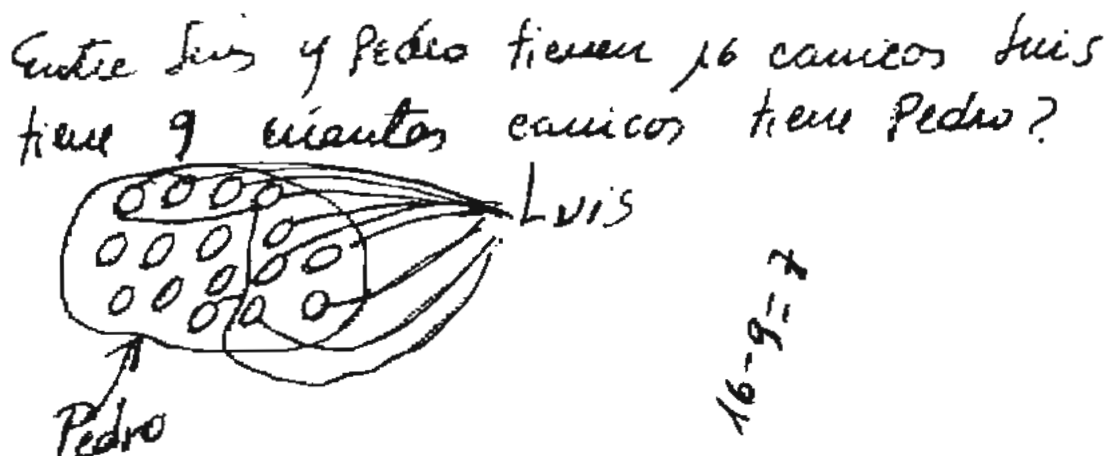 Entre Luis y Pedro tienen 16 canicos Luis
tiene 9 cuantos canicos tiene Pedro?
Luis
16-9=7
Pedro